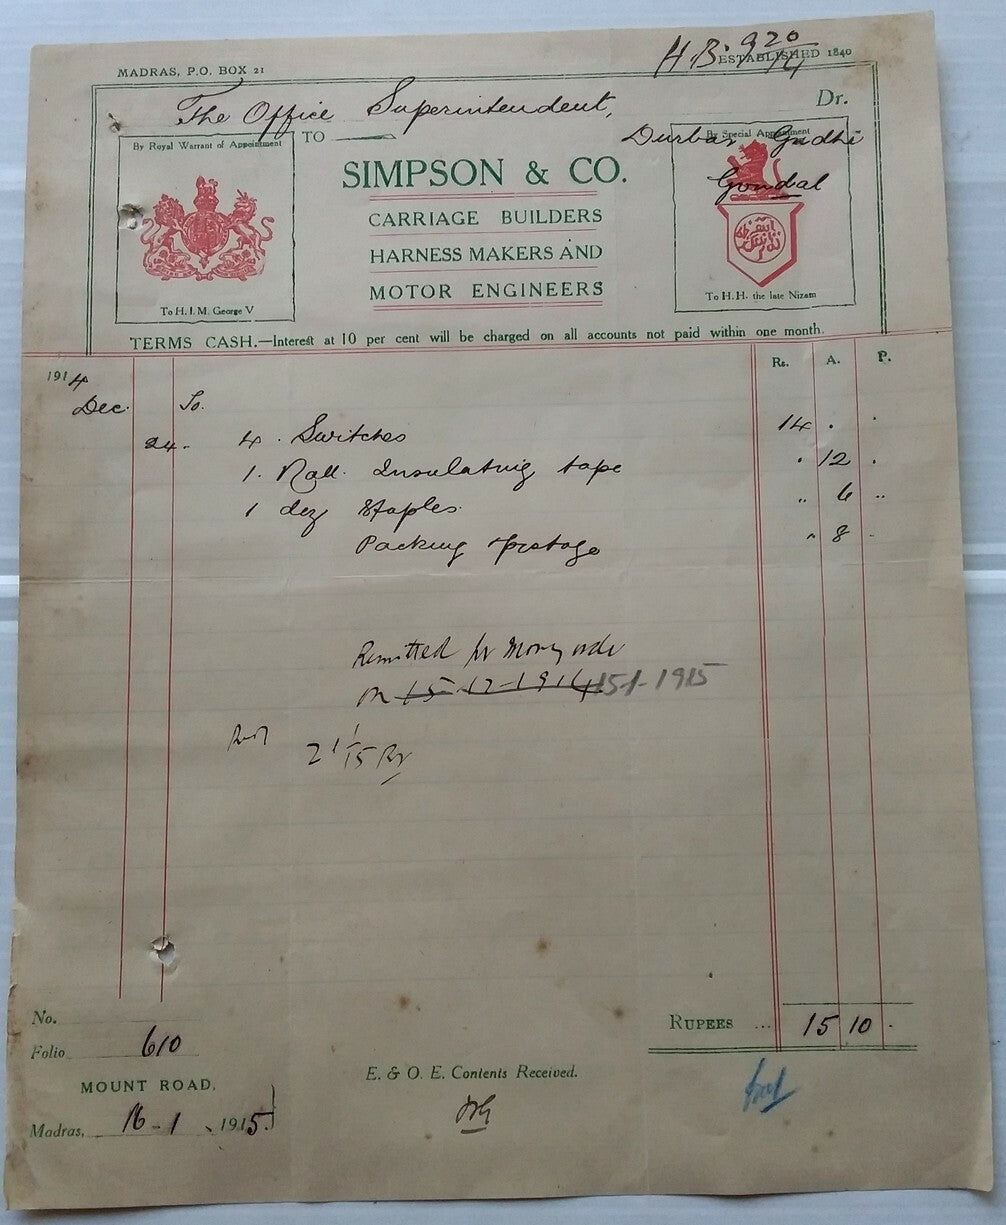 MADRAS, P.O. BOX 21
H.B. 920/14
ESTABLISHED 1840
The Office Superintendent,
Dr.
TO
Durbar Gadhi
Gondal
By Royal Warrant of Appointment
To H.I.M. George V
SIMPSON & CO.
CARRIAGE BUILDERS
HARNESS MAKERS AND
MOTOR ENGINEERS
By Special Appointment
To H.H. the late Nizam
TERMS CASH.—Interest at 10 per cent will be charged on all accounts not paid within one month.
Rs. A. P.
1914
Dec. To.
24. 4. Switches 14 . .
1. Roll. Insulating tape . 12 .
1 doz Staples. " 6 "
Packing & postage " 8 .
Remitted by Money order
on 15-12-1914 15-1-1915
RUPEES ... 15 10 .
No.
Folio 610
MOUNT ROAD,
Madras, 16-1, 1915.
E. & O. E. Contents Received.